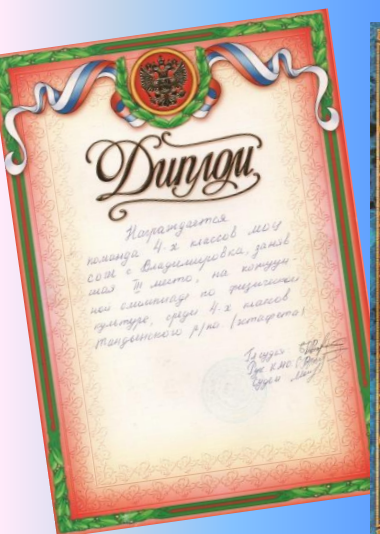 Диплом
Награждается
команда 4-х классов МОУ
СОШ с Владимировка, заняв
шая III место, на
ной олимпиаде по физической
культуре, среди 4-х классов
р/на. (эстафета)
Гл судья
Рук КМО